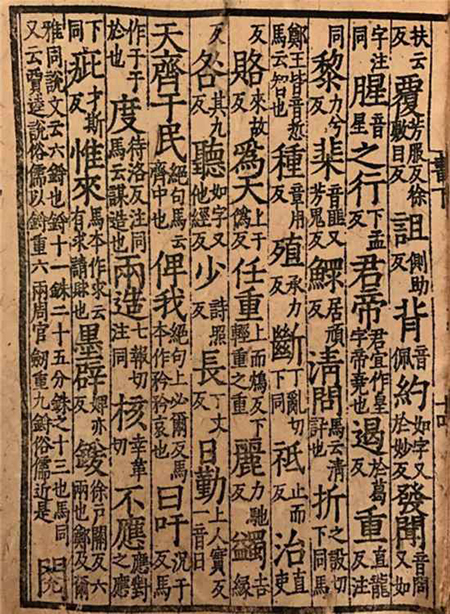 扶云反覆芳服反徐敷目反詛側助反背音佩約如字又於妙反發聞音問又如
字注同腥音星之行下孟反君帝君宜作皇字帝堯也遏於葛反重直龍反注
同黎力兮反棐音匪又芳鬼反鰥居頑反清問馬云清訊也折之設切下同馬
鄭王皆音悊馬云智也種章用反殖承力反斷丁亂切下同祗止而反治直吏
反賂來故反為天上于偽反任重上而鴆反下輕重之重麗力馳反蠲吉緣
反咎其九反聽如字又他經反少詩照反長丁丈反日勤上人實反一音曰
天齊于民絕句馬云齊中也俾我絕句上必爾反馬本作矜矜哀也曰吁況于反馬
作于于於也度待洛反注同馬云謀造也兩造七報切注同核幸革切不應應對之應
下同疵才斯反惟來馬本作求云有求請賕也墨辟婢亦反鍰徐戶關反六兩也鄭及爾
雅同說文云六鋝也鋝十一銖二十五分銖之十三也馬同又云賈逵說俗儒以鋝重六兩周官劒重九鋝俗儒近是閱